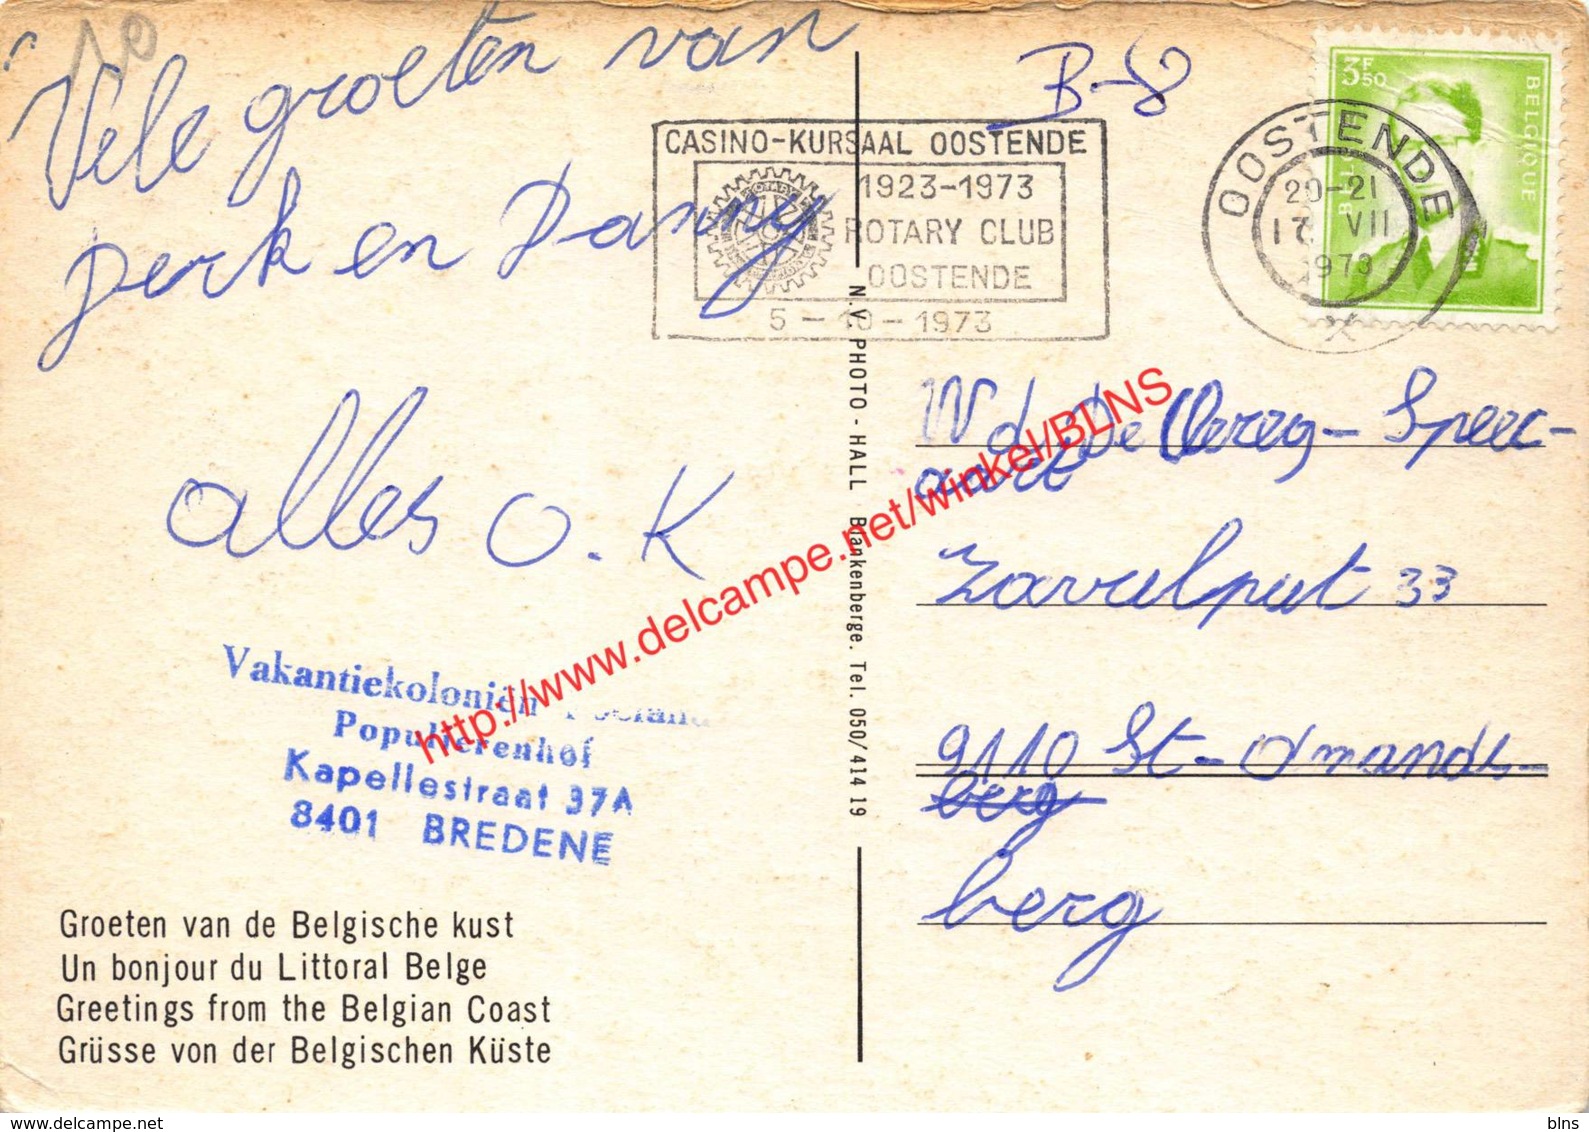 10
Vele groeten van
Jerk en Danny
alles O.K
Vakantiekoloniën
Populierenhof
Kapellestraat 37A
8401 BREDENE
Groeten van de Belgische kust
Un bonjour du Littoral Belge
Greetings from the Belgian Coast
Grüsse von der Belgischen Küste
N.V. PHOTO - HALL Blankenberge. Tel. 050/414 19
B-8
CASINO-KURSAAL OOSTENDE
1923-1973
ROTARY CLUB
OOSTENDE
5-10-1973
OOSTENDE
20-21
17 VII
1973
X
3F50
BELGIQUE
De Vereeg-Speec-
Zavelput 33
9110 St-Amands-
berg
berg
http://www.delcampe.net/winkel/BLNS
www.delcampe.net
blns